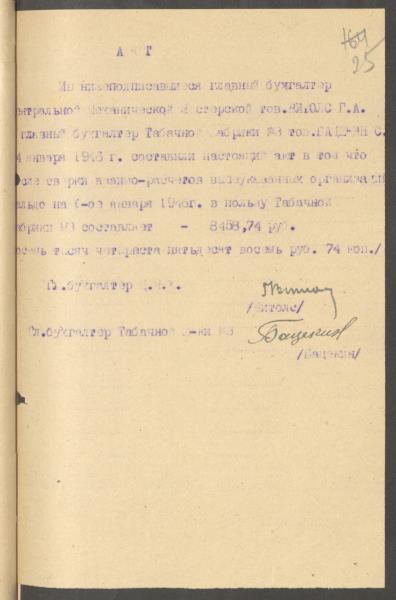 164
25
А К Т
Мы нижеподписавшиеся главный бухгалтер
нтральной Механической Мастерской тов. ВИТОЛС Г.А.
главный бухгалтер Табачной Фабрики №3 тов.
4 января 1946 г. составили настоящий акт в том что
сле сверки взаимо-расчетов вышеуказанных организаций
льдо на января 1946г. в пользу Табачной
абрики №3 составляет - 8458,74 руб.
осемь тысяч четыраста пятьдесят восемь руб. 74 коп./
Гл.бухгалтер Ц.М.М.
/Витолс/
Гл.бухгалтер Табачной Ф-ки №3
/Бацекин/